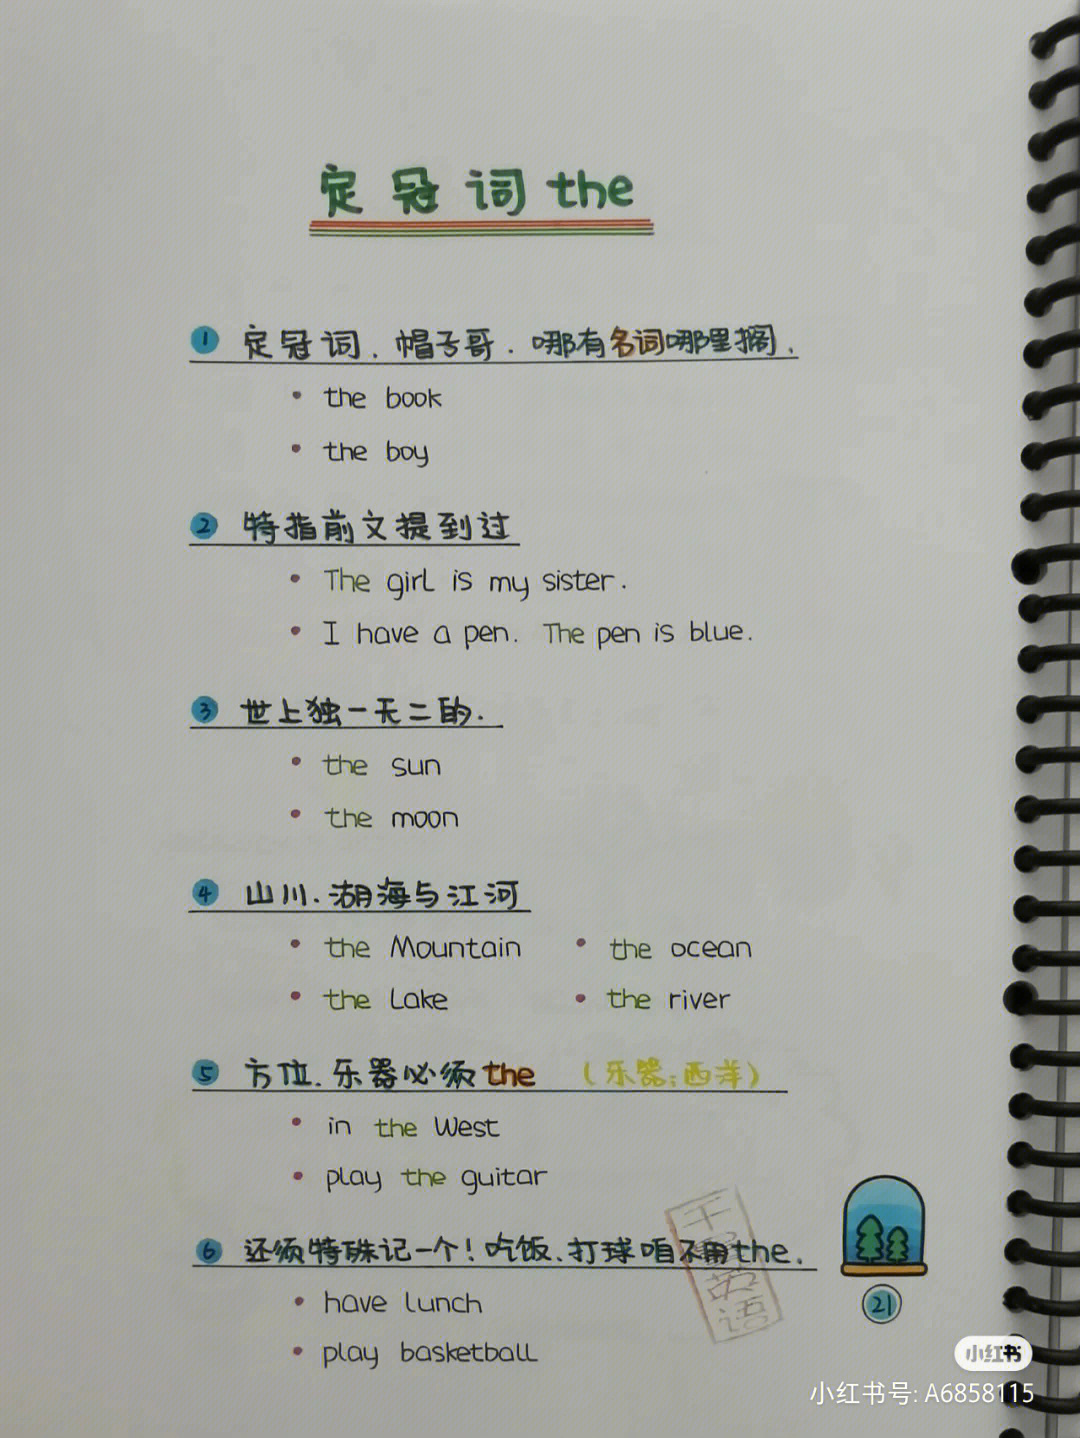 定冠词 the
1 定冠词. 帽子哥. 哪有名词哪里搁.
• the book
• the boy
2 特指前文提到过
• The girl is my sister.
• I have a pen. The pen is blue.
3 世上独一无二的.
• the sun
• the moon
4 山川. 湖海与江河
• the Mountain • the ocean
• the Lake • the river
5 方位. 乐器必须 the （乐器：西洋）
• in the West
• play the guitar
6 还须特殊记一个！吃饭、打球咱不用the.
• have lunch
• play basketball
英语
21
小红书
小红书号: A6858115